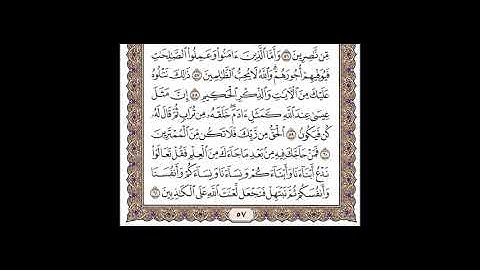 مِّن نَّٰصِرِينَ ٥٦ وَأَمَّا ٱلَّذِينَ ءَامَنُوا۟ وَعَمِلُوا۟ ٱلصَّٰلِحَٰتِ
فَيُوَفِّيهِمْ أُجُورَهُمْ وَٱللَّهُ لَا يُحِبُّ ٱلظَّٰلِمِينَ ٥٧ ذَٰلِكَ نَتْلُوهُ
عَلَيْكَ مِنَ ٱلْءَايَٰتِ وَٱلذِّكْرِ ٱلْحَكِيمِ ٥٨ إِنَّ مَثَلَ
عِيسَىٰ عِندَ ٱللَّهِ كَمَثَلِ ءَادَمَ خَلَقَهُۥ مِن تُرَابٍ ثُمَّ قَالَ لَهُۥ
كُن فَيَكُونُ ٥٩ ٱلْحَقُّ مِن رَّبِّكَ فَلَا تَكُن مِّنَ ٱلْمُمْتَرِينَ
٦٠ فَمَنْ حَآجَّكَ فِيهِ مِنۢ بَعْدِ مَا جَآءَكَ مِنَ ٱلْعِلْمِ فَقُلْ تَعَالَوْا۟
نَدْعُ أَبْنَآءَنَا وَأَبْنَآءَكُمْ وَنِسَآءَنَا وَنِسَآءَكُمْ وَأَنفُسَنَا
وَأَنفُسَكُمْ ثُمَّ نَبْتَهِلْ فَنَجْعَل لَّعْنَتَ ٱللَّهِ عَلَى ٱلْكَٰذِبِينَ ٦١
٥٧